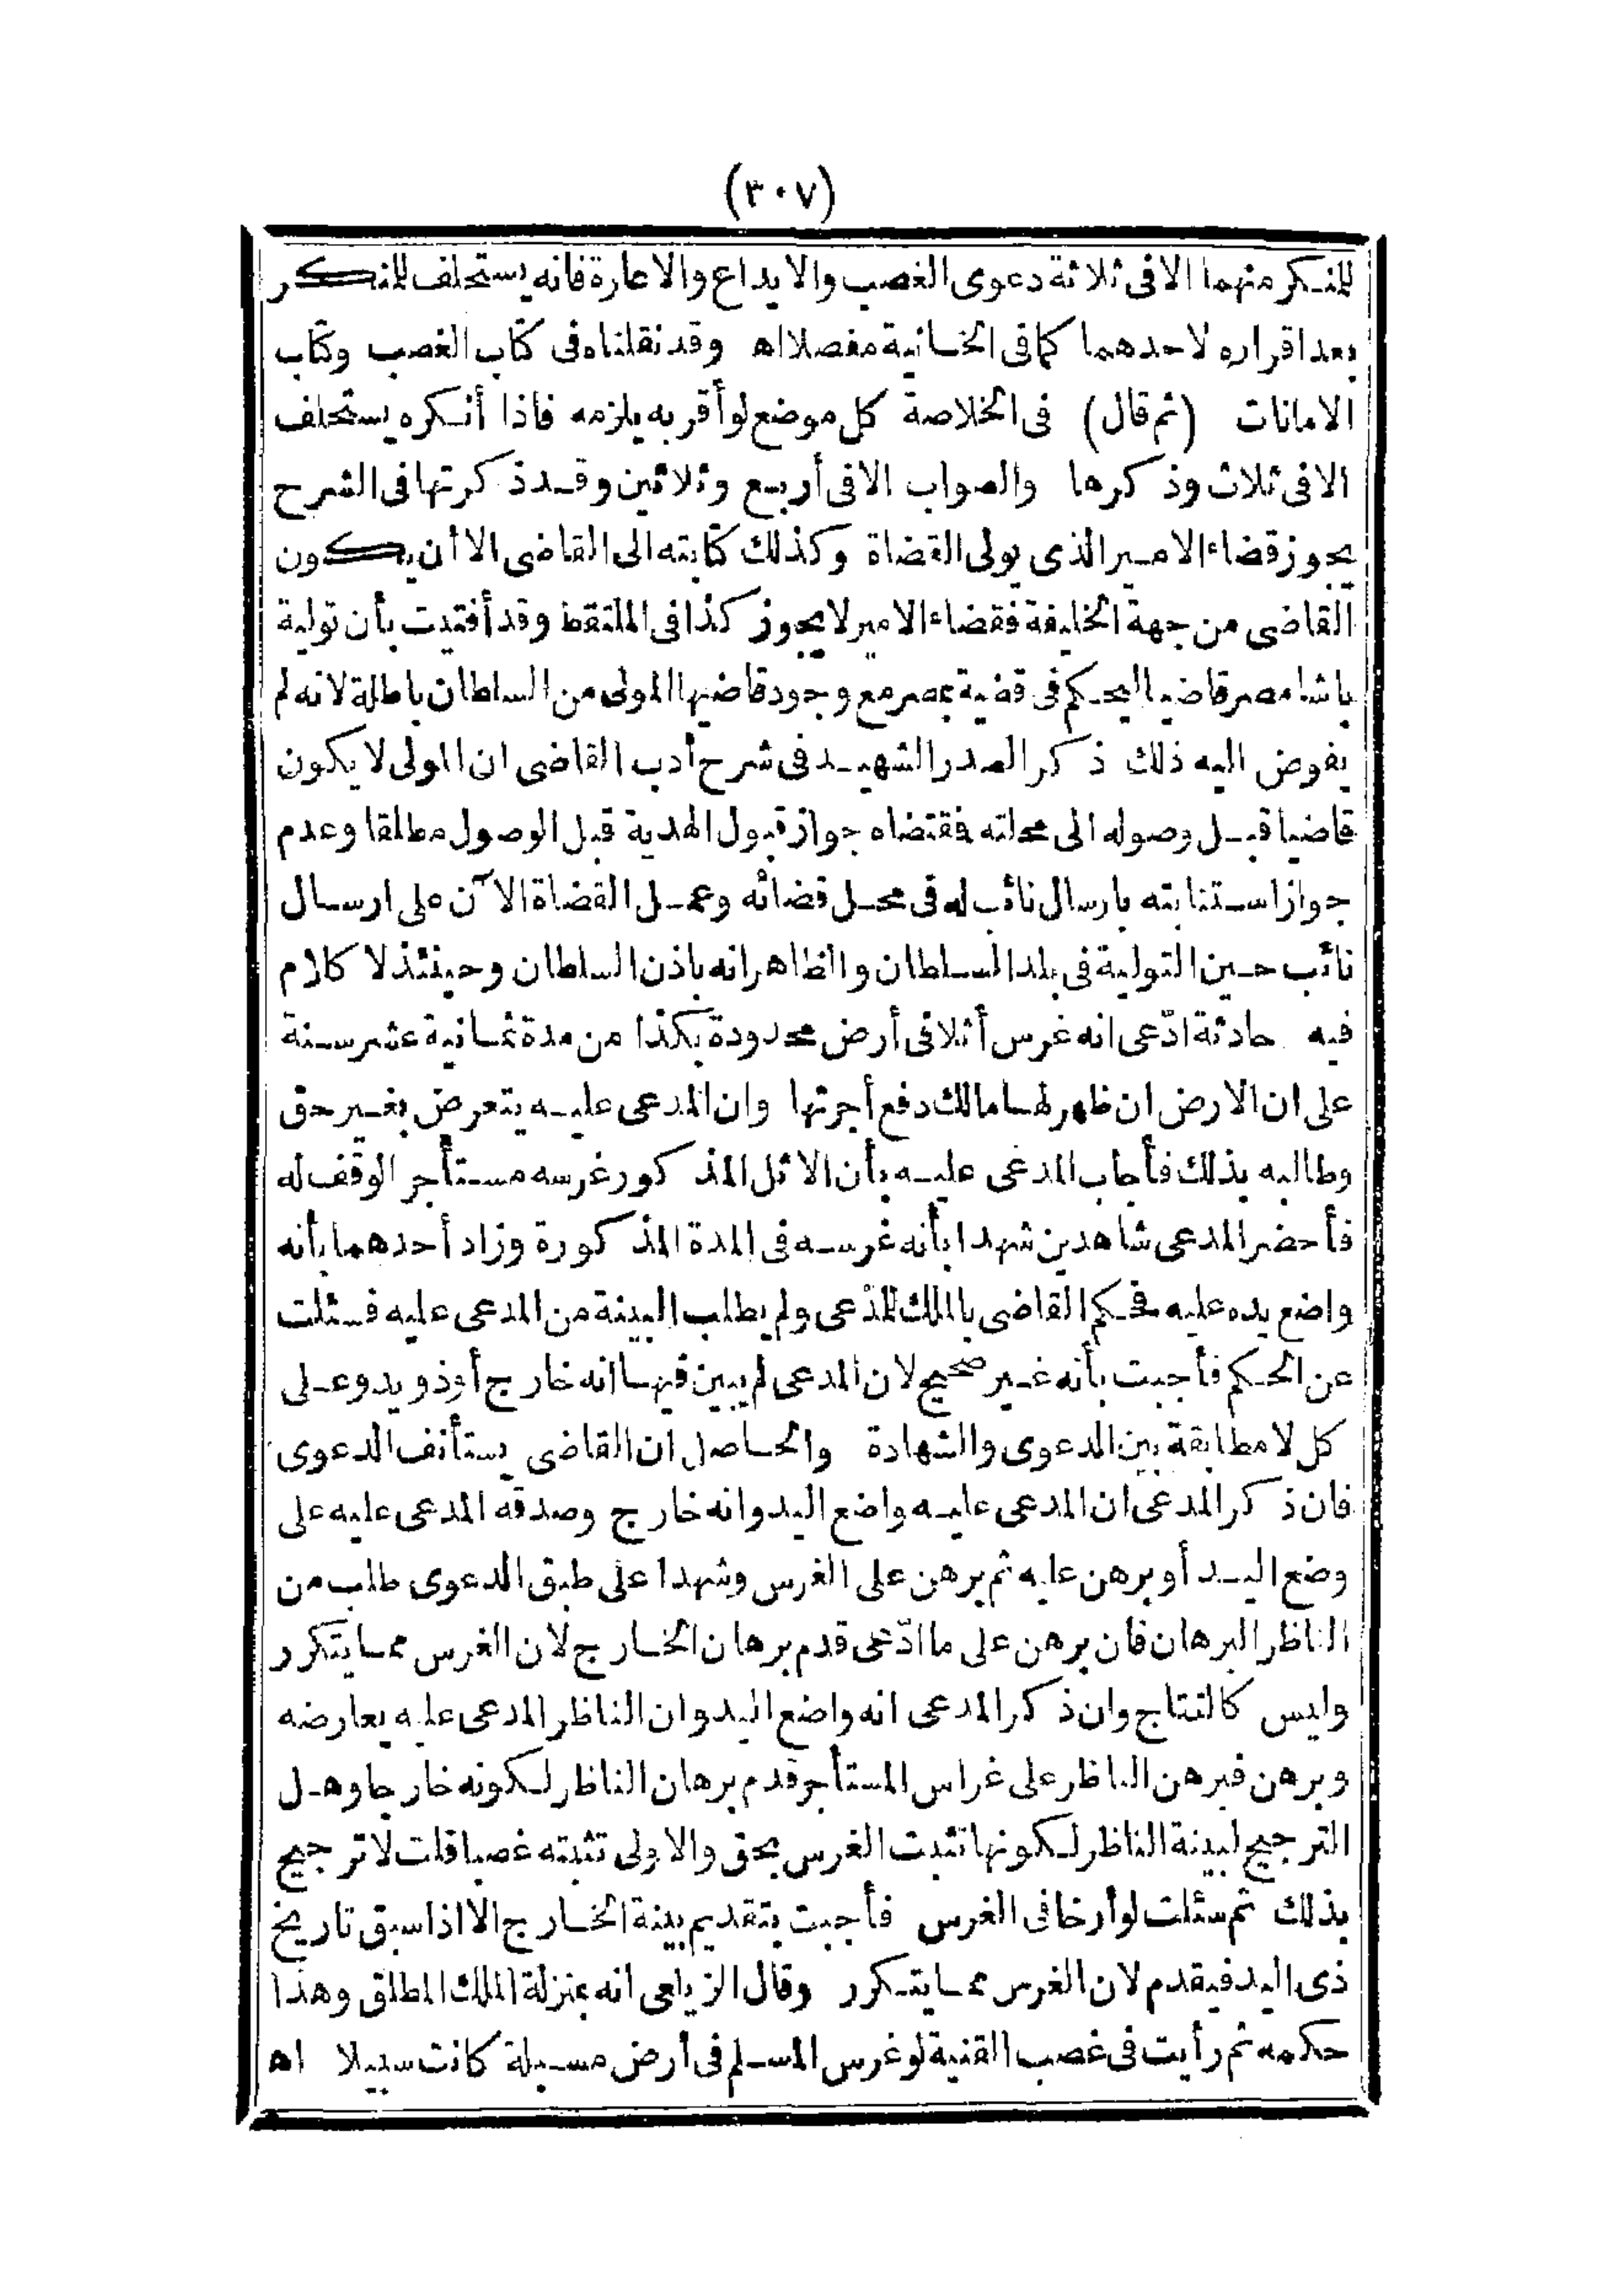 (٣٠٧)
للمنكر منهما الا فى ثلاثة دعوى الغصب والايداع والاعارة فانه يستحلف للمنكر
بعد اقراره لاحدهما كما فى الخانية مفصلا اه وقد نقلناه فى كتاب الغصب وكتاب
الامانات (ثم قال) فى الخلاصة كل موضع لو أقر به يلزمه فاذا أنكره يستحلف
الا فى ثلاث وذكرها والصواب الا فى أربع وثلاثين وقد ذكرتها فى الشرح
يجوز قضاء الامير الذى يولى القضاة وكذلك كتابته الى القاضى الا أن يكون
القاضى من جهة الخليفة فقضاء الامير لا يجوز كذا فى الملتقط وقد أفتيت بأن تولية
باشا مصر قاضيا ليحكم فى قضية بمصر مع وجود قاضيها المولى من السلطان باطلة لانه لم
يفوض اليه ذلك ذكر الصدر الشهيد فى شرح أدب القاضى ان المولى لا يكون
قاضيا قبل وصوله الى محلته فقتضاه جواز قبول الهدية قبل الوصول مطلقا وعدم
جواز استنابته بارسال نائب له فى محل قضائه وعمل القضاة الآن على ارسال
نائب حين التولية فى بلد السلطان والظاهر انه باذن السلطان وحينئذ لا كلام
فيه حادثة ادّعى انه غرس أثلا فى أرض محدودة بكذا من مدة ثمانية عشر سنة
على ان الارض ان ظهر لها مالك دفع أجرتها وان المدعى عليه يتعرض بغير حق
وطالبه بذلك فأجاب المدعى عليه بأن الاثل المذكور غرسه مستأجر الوقف له
فأحضر المدعى شاهدين شهدا بأنه غرسه فى المدة المذكورة وزاد أحدهما بأنه
واضع يده عليه فحكم القاضى بالملك للمدّعى ولم يطلب البينة من المدعى عليه فسئلت
عن الحكم فأجبت بأنه غير صحيح لان المدعى لم يبين فيها انه خارج أو ذو يد وعلى
كل لا مطابقة بين الدعوى والشهادة والحاصل ان القاضى يستأنف الدعوى
فان ذكر المدعى ان المدعى عليه واضع اليد وانه خارج وصدقه المدعى عليه على
وضع اليد أو برهن عليه ثم برهن على الغرس وشهدا على طبق الدعوى طلب من
الناظر البرهان فان برهن على ما ادّعى قدم برهان الخارج لان الغرس مما يتكرر
وليس كالنتاج وان ذكر المدعى انه واضع اليد وان الناظر المدعى عليه يعارضه
وبرهن فبرهن الناظر على غراس المستأجر قدم برهان الناظر لكونه خارجا وهل
الترجيح لبينة الناظر لكونها تثبت الغرس بحق والاولى تثبته غصبا قلت لا ترجيح
بذلك ثم سئلت لو أرخا فى الغرس فأجبت بتقديم بينة الخارج الا اذا سبق تاريخ
ذى اليد فيقدم لان الغرس مما يتكرر وقال الزيلعى انه بمنزلة الملك المطلق وهذا
حكمه ثم رأيت فى غصب القنية لو غرس المسلم فى أرض مسبلة كانت سبيلا اه